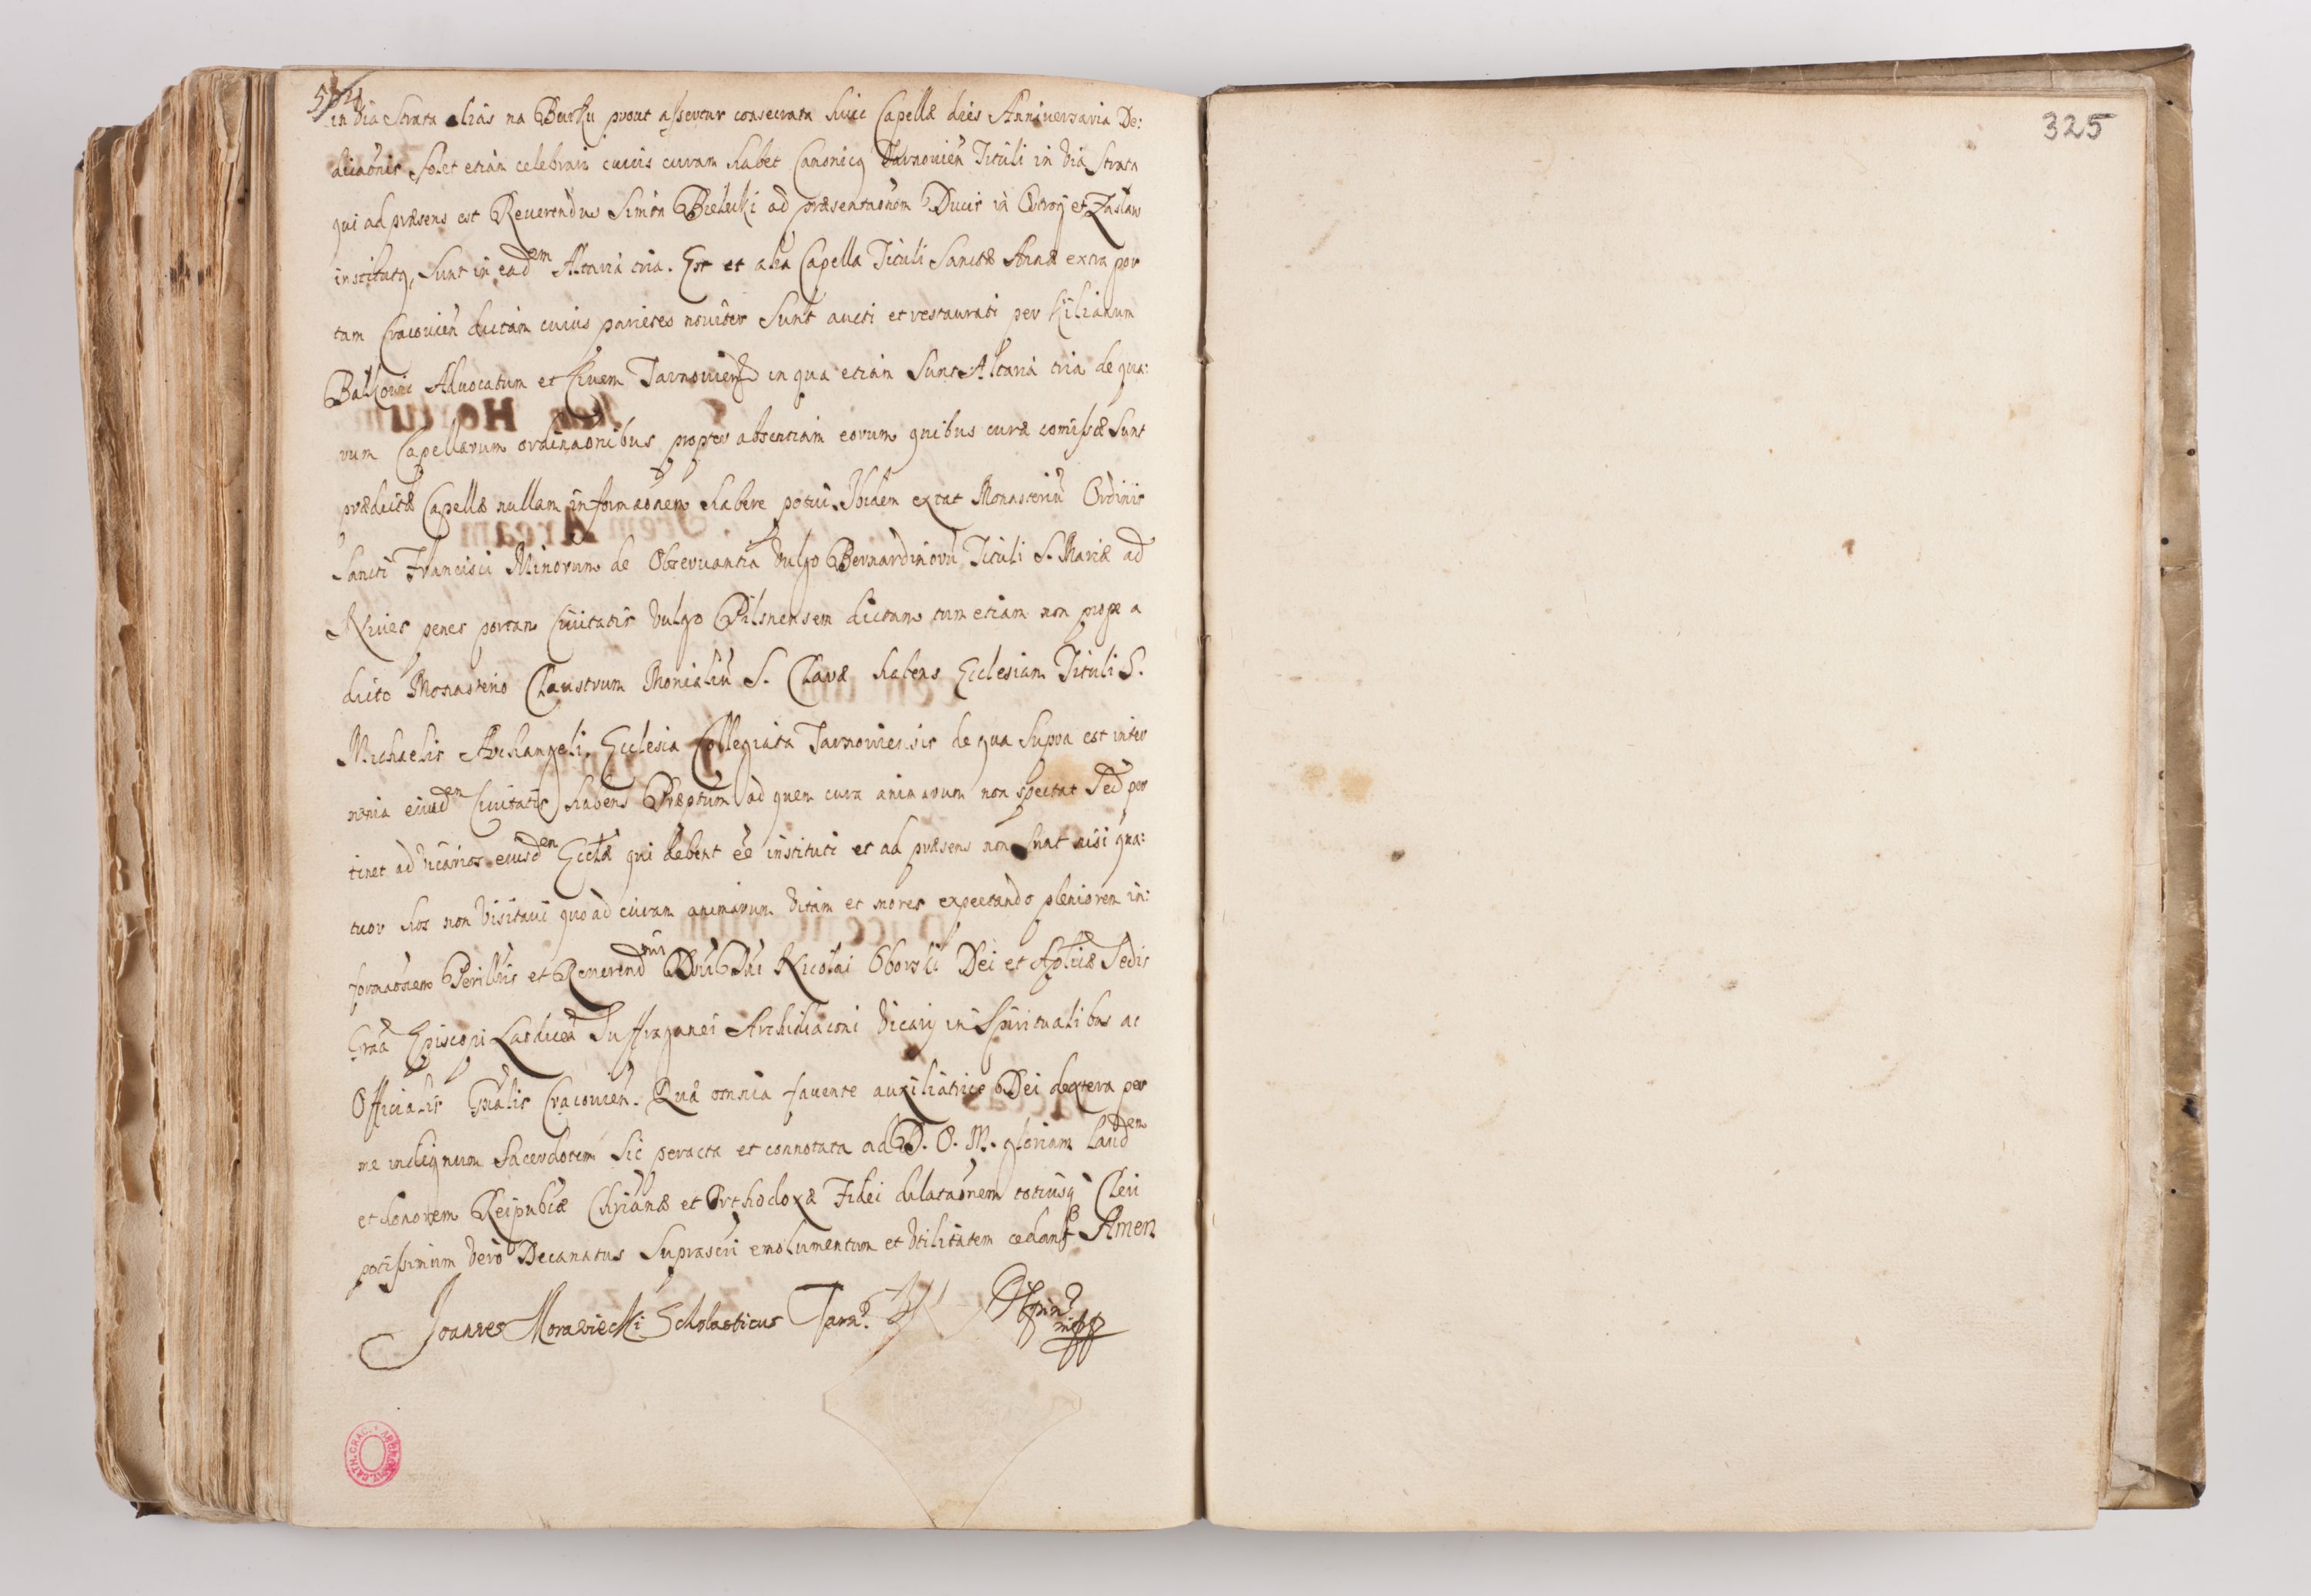 in Via Strata alias na Burku prout asseritur consecrata huic Capellæ dies Anniversaria De:
dicaonis solet etiam celebrari cuius curam habet Canonicq Tarnovien Tituli in Via Strata
qui ad præsens est Reverendus Simon Bielucki ad præsentaonem Ducis in Ostrog et Zaslaw
institutq, Sunt in eadem Altaria tria. Est et alia Capella Tituli Sanctæ Annæ extra por
tam Cracovien dictam cuius parietes noviter Sunt aucti et restaurati per Kilianum
Advocatum et Civem Tarnovien in qua etiam Sunt Altaria tria de qua:
rum Capellarum ordinaonibus propter absentiam eorum quibus curæ comissæ Sunt
prædictæ Capellæ nullam informaonem habere potui. Ibidem extat Monasteriu Ordinis
Sancti Francisci Minorum de Observantia Vulgo Bernardinoru Tituli S. Mariæ ad
Nives penes portam Civitatis Vulgo Pilsnensem dictam tum etiam non prope a
dicto Monasterio Claustrum Monialiu S. Claræ habens Ecclesiam Tituli S.
Michaelis Archangeli. Ecclesia Collegiata Tarnoviensis de qua Supra est inter
mænia eiusdem Civitatis habens Præptum ad quem cura animarum non spectat Sed per
tinet ad Vicarios eiusdem Eccliæ qui debent ee instituti et ad præsens non sunt nisi qua:
tuor hos non Visitavi quo ad curam animarum Vitam et mores expectando pleniorem in:
formaonem Perillris et Reverendmi Dni Nicolai Oborski Dei et Aplicæ Sedis
Graa Episcopi Laodicen Suffraganei Archidiaconi Vicarij in Spiritualibus ac
Officialis Gnalis Cracovien. Quæ omnia favente auxiliatrice Dei dextera per
me indignum Sacerdotem Sic peracta et connotata ad D. O. M. gloriam laudem
et honorem Reipubcæ Chrianæ et Orthodoxæ Fidei dilataonem totiusq Cleri
potissimum Vero Decanatus Suprascri emolumentum et Utilitatem cedant Amen
Joannes Morawiecki Scholasticus Tarn.
325